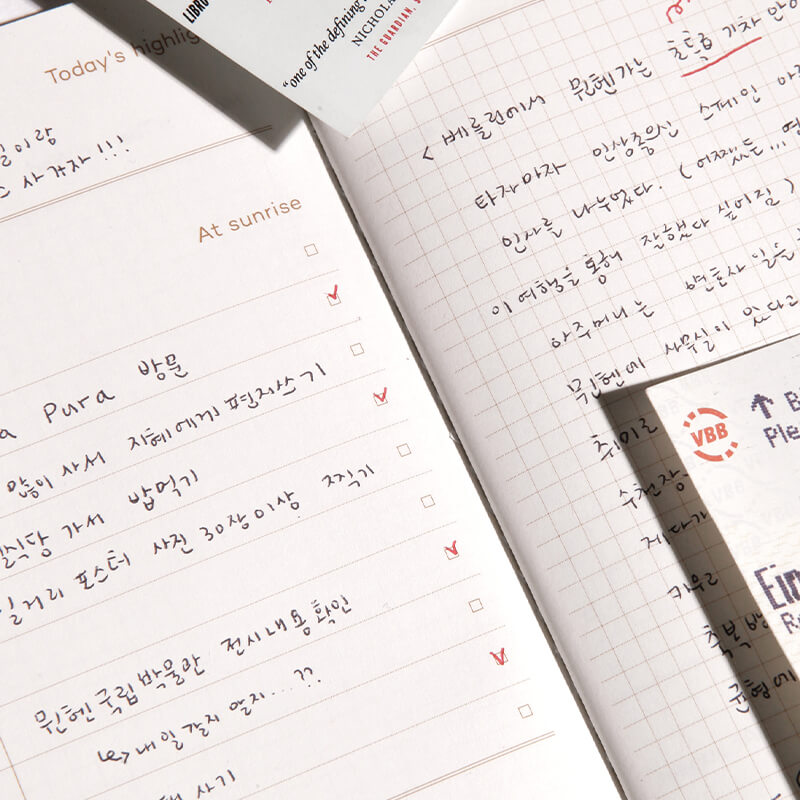 Today's highlig
일이랑
사가자!!!
At sunrise
a Pura 방문
많이 사서 지혜에게 편지쓰기
식당 가서 밥먹기
길거리 포스터 사진 30장 이상 찍기
뮌헨국립박물관 전시내용확인
↳> 내일 갈지 말지...??
사기
LIBRO
"one of the defining
NICHOLA
THE GUARDIAN, S
초특급 기차 안에
<베를린에서 뮌헨가는
타자마자 인상좋으신 스페인
인사를 나누었다. (어쨌든...
이 여행을 통해 잘했다 싶어짐)
아주머니는 변호사 일을
뮌헨에 사무실이 있다고
취미로
수천장
게다가
마무리
축복
균형에
VBB
↑ B
Ple
Ein